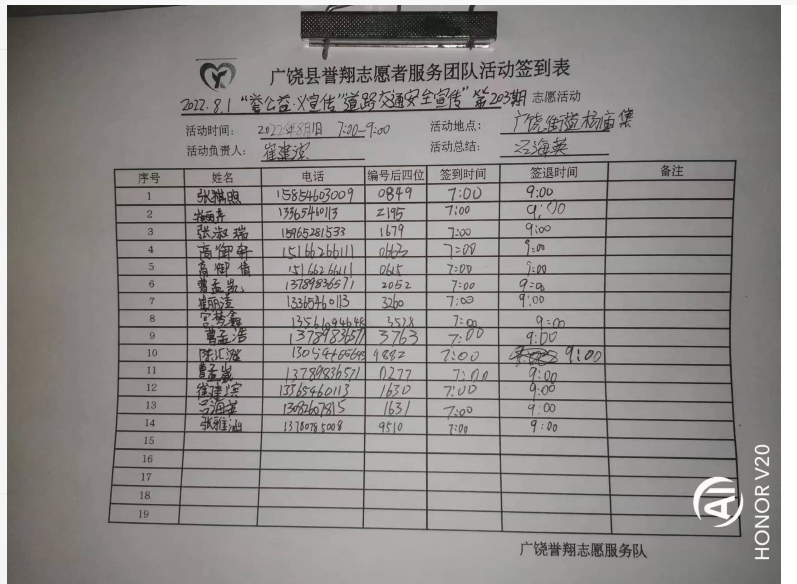 广饶县誉翔志愿者服务团队活动签到表
2022.8.1 "誉公益·义宣传"道路交通安全宣传"第203期 志愿活动
活动时间： 2022年8月1日 7:00-9:00 活动地点： 广饶街道杨庙集
活动负责人： 崔建滨 活动总结： 吕海英
序号 姓名 电话 编号后四位 签到时间 签退时间 备注
1 15854603009 0849 7:00 9:00
2 13365460113 2195 7:00 9:00
3 张淑瑞 15965281533 1679 7:00 9:00
4 高御轩 15166266111 7:00 9:00
5 高御倩 15166266111 0615 7:00 9:00
6 曹孟凯 13789836571 2052 7:00 9:00
7 崔丽涛 13365460113 3260 7:00 9:00
8 3578 7:00 9:00
9 曹孟浩 13789836571 3763 7:00 9:00
10 陈汇滋 9882 7:00 9:00
11 13789836571 0277 7:00 9:00
12 崔建滨 13365460113 1630 7:00 9:00
13 吕海英 13082607815 1631 7:00 9:00
14 张雅汕 9510 7:00 9:00
15
16
17
18
19
广饶誉翔志愿服务队
AI
HONOR V20